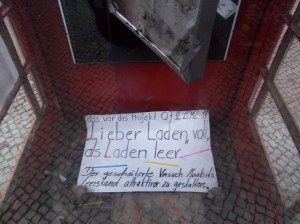 das war das Projekt
Lieber Laden voll,
als Laden leer
Der gescheiterte Versuch Moabits
Leerstand attraktiver zu gestalten.